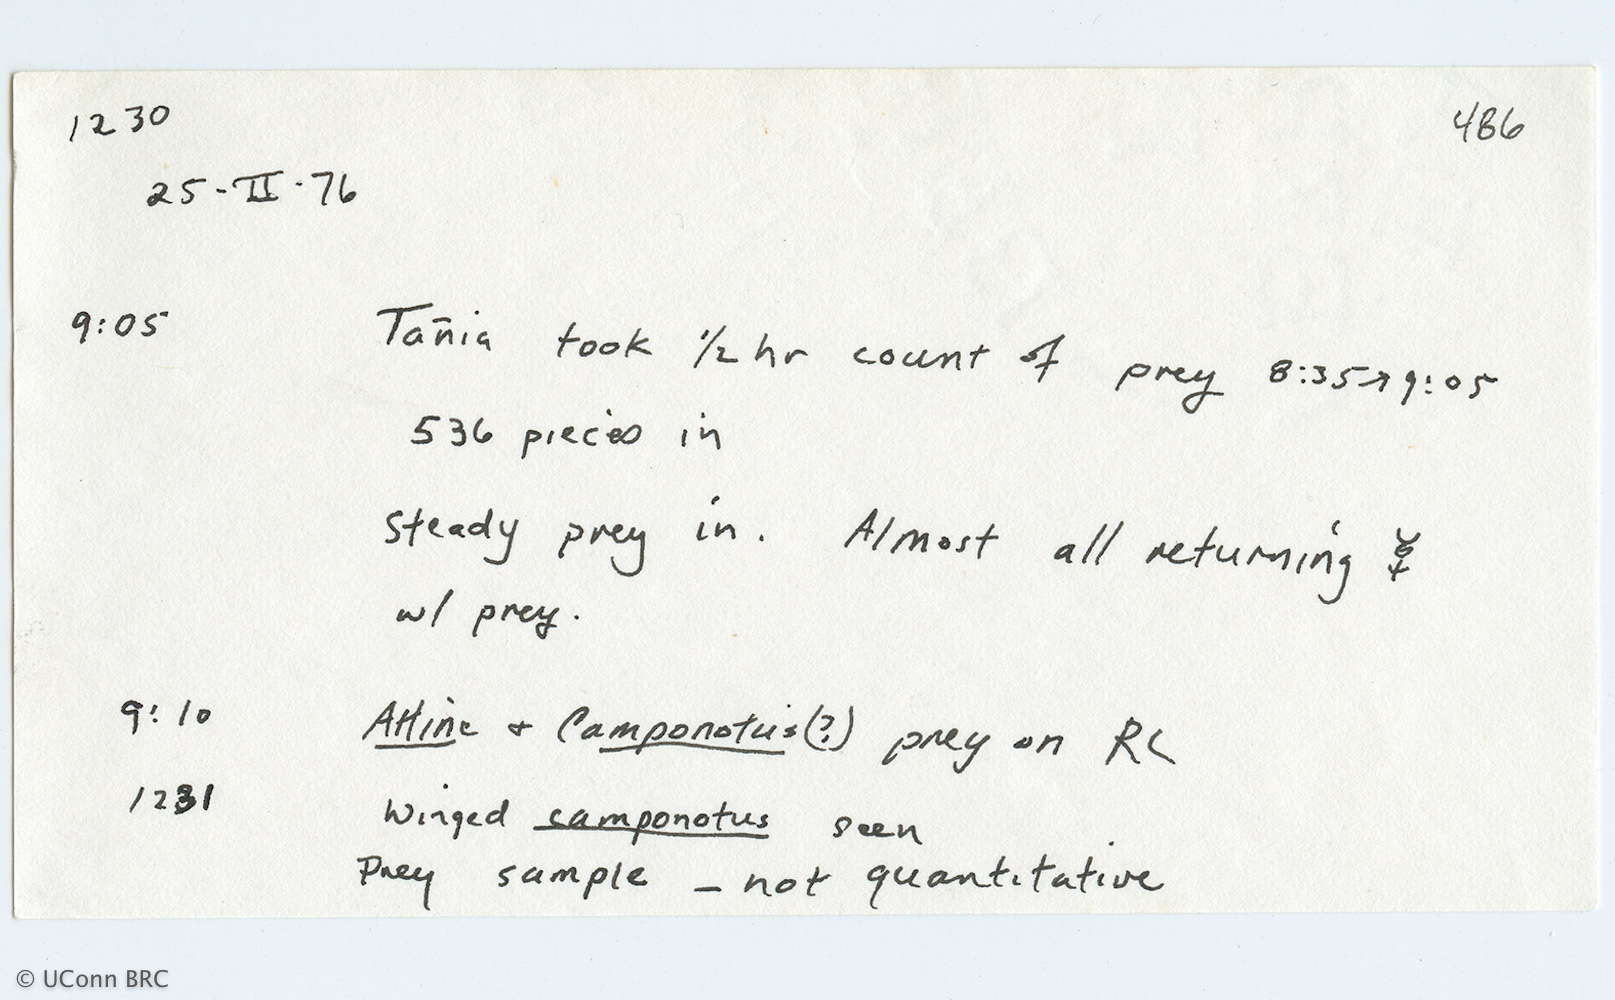 1230 486
25-II-76
9:05 Tañia took 1/2 hr count of prey 8:35→9:05
536 pieces in
Steady prey in. Almost all returning ☿
w/ prey.
9:10 Attine + Camponotus(?) prey on RC
1231 Winged camponotus seen
Prey sample – not quantitative
© UConn BRC